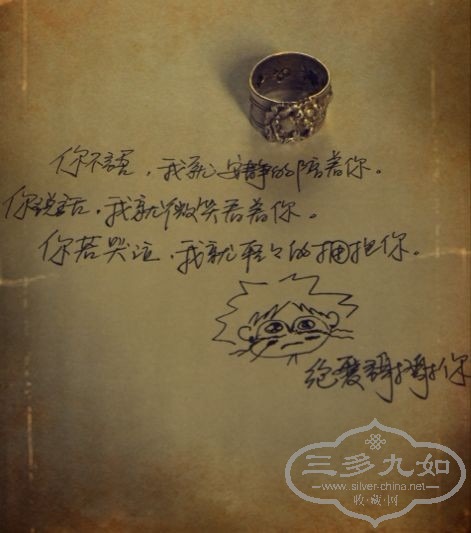 你不语，我就安静的陪着你。
你说话，我就微笑看着你。
你若哭泣，我就轻々的拥抱你。
绝爱谢谢你
三多九如
www.silver-china.net
收·藏·网